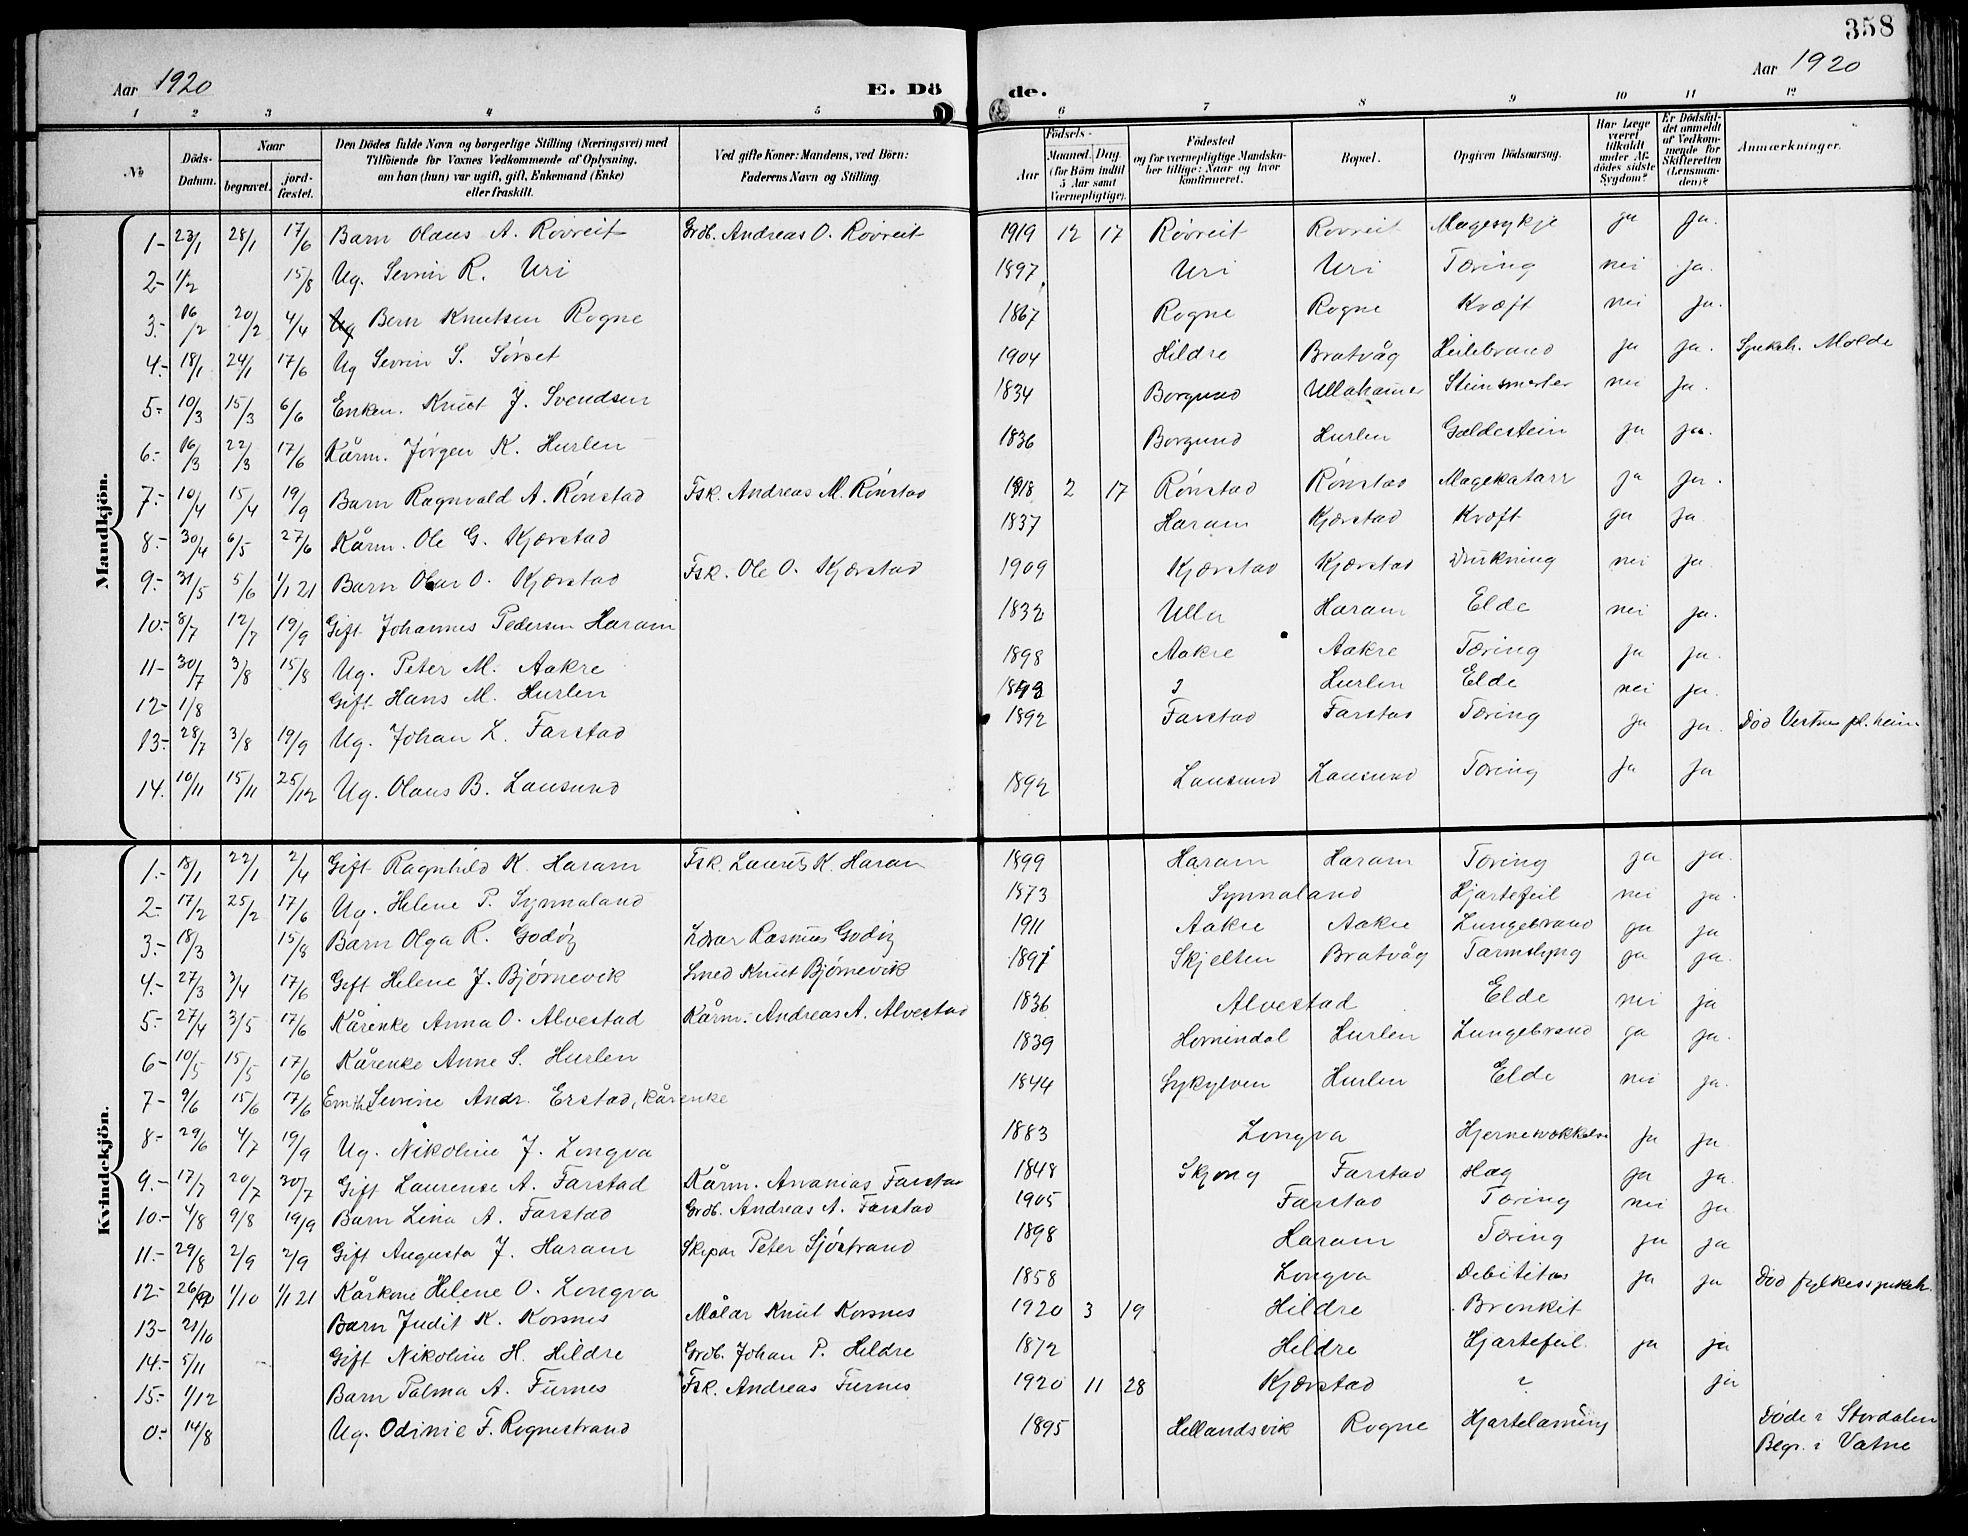 358
Aar 1920 E. Dö de. Aar 1920
1 2 3 4 5 6 7 8 9 10 11 12
№ Döds-Datum. Naar begravet. jord-fæstet. Den Dödes fulde Navn og borgerlige Stilling (Næringsvei) med Tilföiende for Voxnes Vedkommende af Oplysning, om han (hun) var ugift, gift, Enkemand (Enke) eller fraskilt. Ved gifte Koner: Mandens, ved Börn: Faderens Navn og Stilling. Födsels- Aar Maaned. Dag. (for Börn indtil 5 Aar samt Værnepligtige). Födested og for værnepligtige Mandskaber tillige: Naar og hvor konfirmeret. Bopæl. Opgiven Dödsaarsag. Har Læge været tilkaldt under Afdödes sidste Sygdom? Er Dödsfaldet anmeldt af Vedkommende for Skifteretten (Lensmanden)? Anmærkninger.
Mandkjön.
1- 23/1 28/1 17/6 Barn Olaus A. Rovreit Grdb. Andreas O. Rovreit 1919 12 17 Røvreit Rovreit Magesykje ja ja.
2- 1/2 15/8 Ug. Sevrin R. Uri 1897 Uri Uri Tæring nei ja.
3.- 16/2 20/2 4/4 Bern Knutsen Rogne 1867 Rogne Rogne Kræft nei ja.
4.- 18/1 24/1 17/6 Ug Sevrin S. Sørset 1904 Hildre Bratvåg Heilebrand ja ja. Sjukeh. Molde
5- 10/3 15/3 6/6 Enkem. Knut J. Svendsen 1834 Borgund Ullahammer Steinsmerter nei ja.
6.- 16/3 22/3 17/6 Kårm. Jørgen K. Hurlen 1836 Borgund Hurlen Galdestein ja ja.
7- 10/4 15/4 19/9 Barn Ragnvald A. Rønstad Fsk. Andreas M. Rønstad 1918 2 17 Rønstad Rønstad Magekatarr ja ja.
8- 30/4 6/5 27/6 Kårm. Ole G. Kjærstad 1837 Haram Kjærstad Kræft ja ja
9- 31/5 5/6 1/1 21 Barn Olav O. Kjærstad Fsk. Ole O. Kjærstad 1909 Kjærstad Kjærstad Drukning nei ja.
10- 8/7 12/7 19/9 Gift Johannes Pedersen Haram 1832 Ulla Haram Elde nei ja.
11- 30/7 3/8 15/8 Ug. Peter M. Aakre 1898 Aakre Aakre Tæring ja ja.
12- 1/8 Gift Hans M. Hurlen ? Hurlen Elde nei ja.
13- 28/7 3/8 19/9 Ug. Johan L. Farstad 1892 Farstad Farstad Tæring ja ja. Død Vestnes pl.heim
14. 10/11 15/11 25/12 Ug. Olaus B. Lausund 1892 Lausund Lausund Tæring ja ja
Kvindekjön.
1.- 18/1 22/1 2/4 Gift Ragnhild K. Haram Fsk. Laurits K. Haram 1899 Haram Haram Tæring ja ja.
2- 17/2 25/2 17/6 Ug. Helene P. Synnaland 1873 Synnaland Hjartefeil nei ja.
3.- 18/3 15/8 Barn Olga R. Godøy Lærar Rasmus Godøy 1911 Aakre Aakre Lungebrand ja ja
4.- 27/3 3/4 17/6 Gift Helene J. Bjørnevik Smed Knut Bjørnevik 1891 Skjelten Bratvåg Tarmslyng ja ja.
5- 27/4 3/5 17/6 Kårenke Anna O. Alvestad Kårm. Andreas A. Alvestad 1836 Alvestad Elde nei ja
6- 10/5 15/5 17/6 Kårenke Anne S. Hurlen 1839 Hornindal Hurlen Lungebrand ja ja.
7- 9/6 15/6 17/6 Sevrine Andr. Erstad, kårenke 1844 Sykylven Hurlen Elde nei ja.
8- 29/6 4/7 19/9 Ug. Nikoline J. Longva 1883 Longva ja ja.
9.- 17/7 20/7 30/7 Gift Laurense A. Farstad Kårm. Ananias Farstad 1848 Skjong Farstad Slag ja ja.
10.- 4/8 9/8 19/9 Barn Lina A. Farstad Grdb. Andreas A. Farstad 1905 Farstad Tæring nei ja.
11.- 29/8 2/9 2/9 Gift Augusta J. Haram Skipar Peter Sjøstrand 1898 Haram Tæring ja ja
12- 1/10 1/1 21 Kårkone Helene O. Longva 1858 Longva Debititas ja ja Død fylkessjukeh.
13- 21/10 Barn Judit K. Korsnes Målar Knut Korsnes 1920 3 19 Hildre Bronkit
14- 5/11 Gift Nikoline H. Hildre Grdb. Johan P. Hildre 1872 Hildre Hjartefeil ja ja
15.- 1/12 Barn Palma A. Furnes Fsk. Andreas Furnes 1920 11 28 Kjærstad ? ja
0.- 14/8 Ug. Odinie F. Rognestrand 1895 Hellandsvik Rogne Hjartelaming Døde i Stordalen
Begr. i Vatne